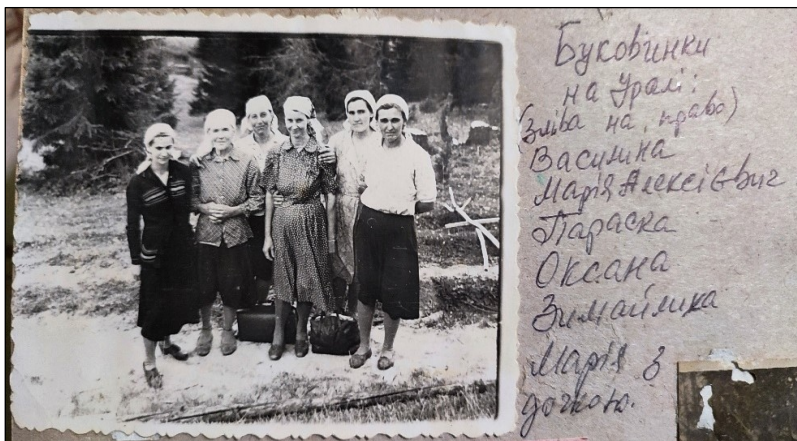 Буковинки
на Уралі:
(зліва на право)
Василина
Марія Алексієвич
Параска
Оксана
Зимайлика
Марія з
дочкою.